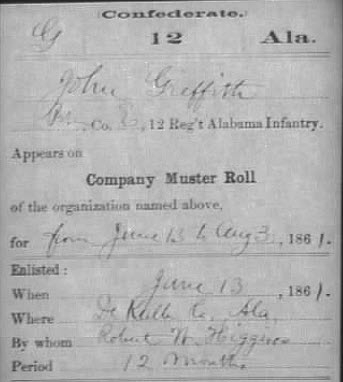 (Confederate.)
G 12 Ala.
John Griffith
Co. E, 12 Reg't Alabama Infantry.
Appears on
Company Muster Roll
of the organization named above,
for from June 13 to Aug 3, 1861.
Enlisted:
When June 13, 1861.
Where De Kalb Co. Ala
By whom Robert W. Higgins
Period 12 Months